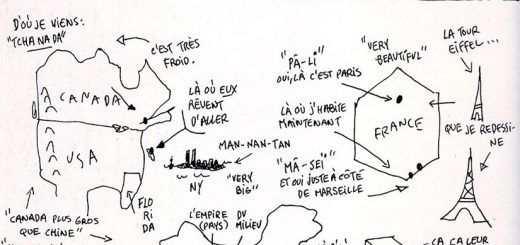 D'OÙ JE VIENS:
"TCHANADA"
C'EST TRÈS
FROID.
CANADA
USA
LÀ OÙ EUX
RÊVENT
D'ALLER
MAN-NAN-TAN
NY
"VERY
BIG"
FLO
RI
DA
"CANADA PLUS GROS
QUE CHINE"
L'EMPIRE DU
(PAYS) MILIEU
"PÂ-LI"
OUI, LÀ C'EST PARIS
"VERY
BEAUTIFUL"
LÀ OÙ J'HABITE
MAINTENANT
FRANCE
"MÂ-SEÏ"
ET OUI JUSTE À CÔTÉ
DE MARSEILLE
LA TOUR
EIFFEL...
QUE JE REDESSI-
NE
- ÇA CA LEUR